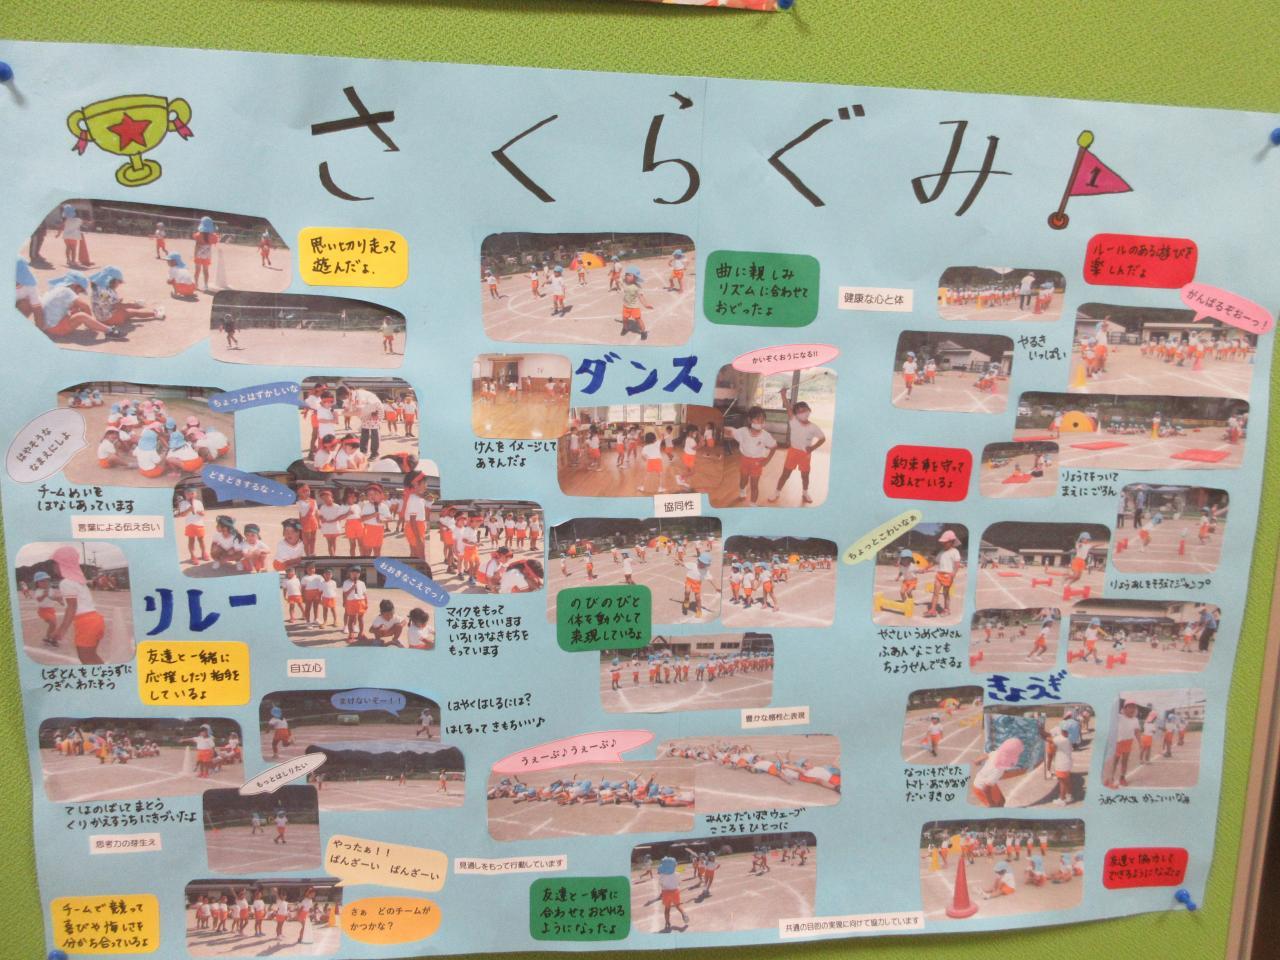 さくらぐみ
1
思い切り走って
遊んだよ.
はやそうな
なまえにしよ
ちょっとはずかしいな
チームめいを
はなしあっています
言葉による伝え合い
どきどきするな・・・
おおきなこえでっ!
リレー
ばとんをじょうずに
つぎへわたそう
友達と一緒に
応援したり拍手を
しているよ
自立心
マイクをもって
なまえをいいます
いろいろなきもちを
もっています
まけないぞー!!
はやくはしるには?
はしるって きもちいい♪
もっとはしりたい
てをのばしてまとう
くりかえすうちにきづいたよ
思考力の芽生え
やったぁ!!
ばんざーい ばんざーい
チームで競って
喜びや悔しさを
分かち合っているよ
さぁ どのチームが
かつかな?
曲に親しみ
リズムに合わせて
おどったよ
ダンス
かいぞくおうになる!!
けんをイメージして
あそんだよ
協同性
のびのびと
体を動かして
表現しているよ
豊かな感性と表現
うぇーぶ♪うぇーぶ♪
みんなだいすきウェーブ
こころをひとつに
見通しをもって行動しています
友達と一緒に
合わせておどれる
ようになったよ
健康な心と体
ルールのある遊びを
楽しんだよ
がんばるぞおーっ!
やるき
いっぱい
約束事を守って
遊んでいるよ
りょうてをついて
まえにごろん
ちょっとこわいなぁ
りょうあしをそろえてジャンプ
やさしいうめぐみさん
ふあんなことも
ちょうせんできるよ
きょうぎ
なつにそだてた
トマト・あさがおが
だいすき♡
うめぐみさん かっこいいなぁ
友達と協力して
できるようになったよ
共通の目的の実現に向けて協力しています